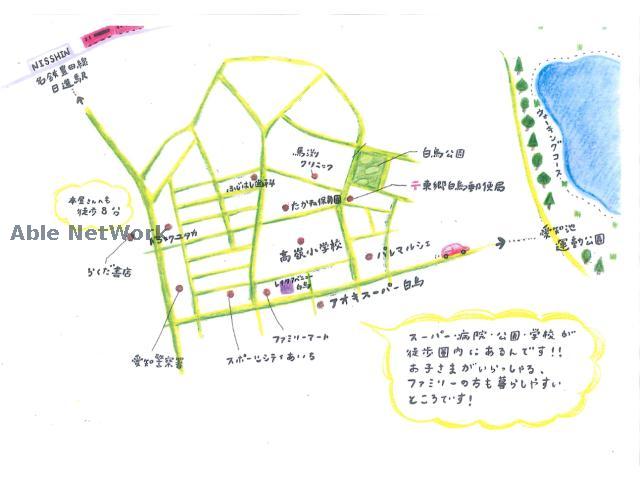 NISSHIN
名鉄豊田線
日進駅
本屋さんへも
徒歩8分
らくだ書店
愛知警察署
スポーツシティあいち
ファミリーマート
アオキスーパー白鳥
高嶺小学校
パレマルシェ
たかね保育園
クリニック
白鳥公園
〒東郷白鳥郵便局
ウォーキングコース
愛知池
運動公園
スーパー・病院・公園・学校が
徒歩圏内にあるんです!!
お子さまがいらっしゃる、
ファミリーの方も暮らしやすい
ところです!
Able NetWork